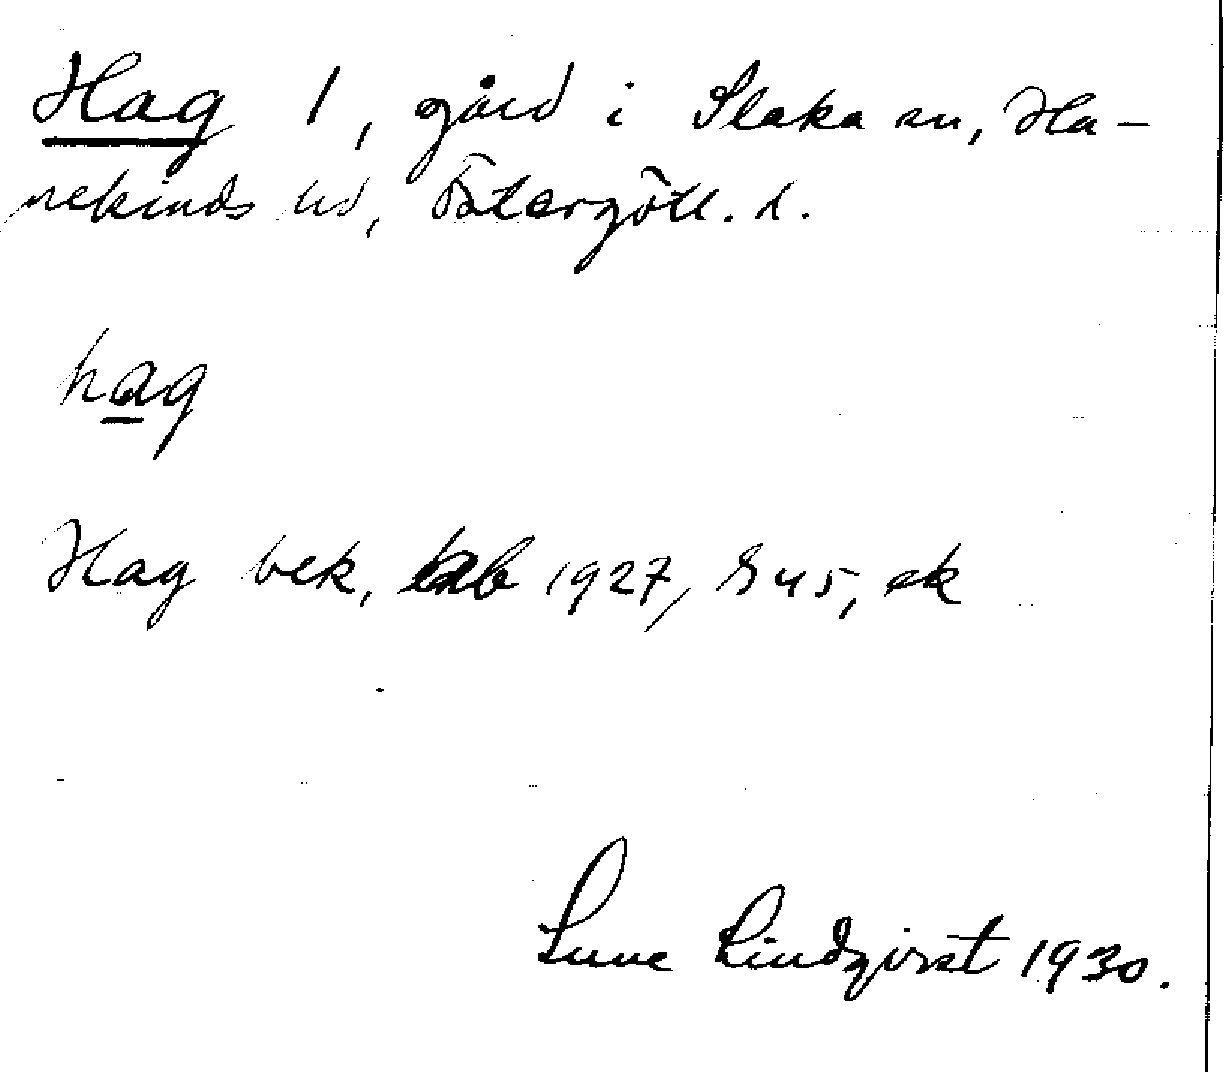 Hag 1, gård i Slaka sn, Ha-
nekinds hd, Östergötl. l.
hag
Hag bek, 1927, § 45, ek
Sune Lindqvist 1930.